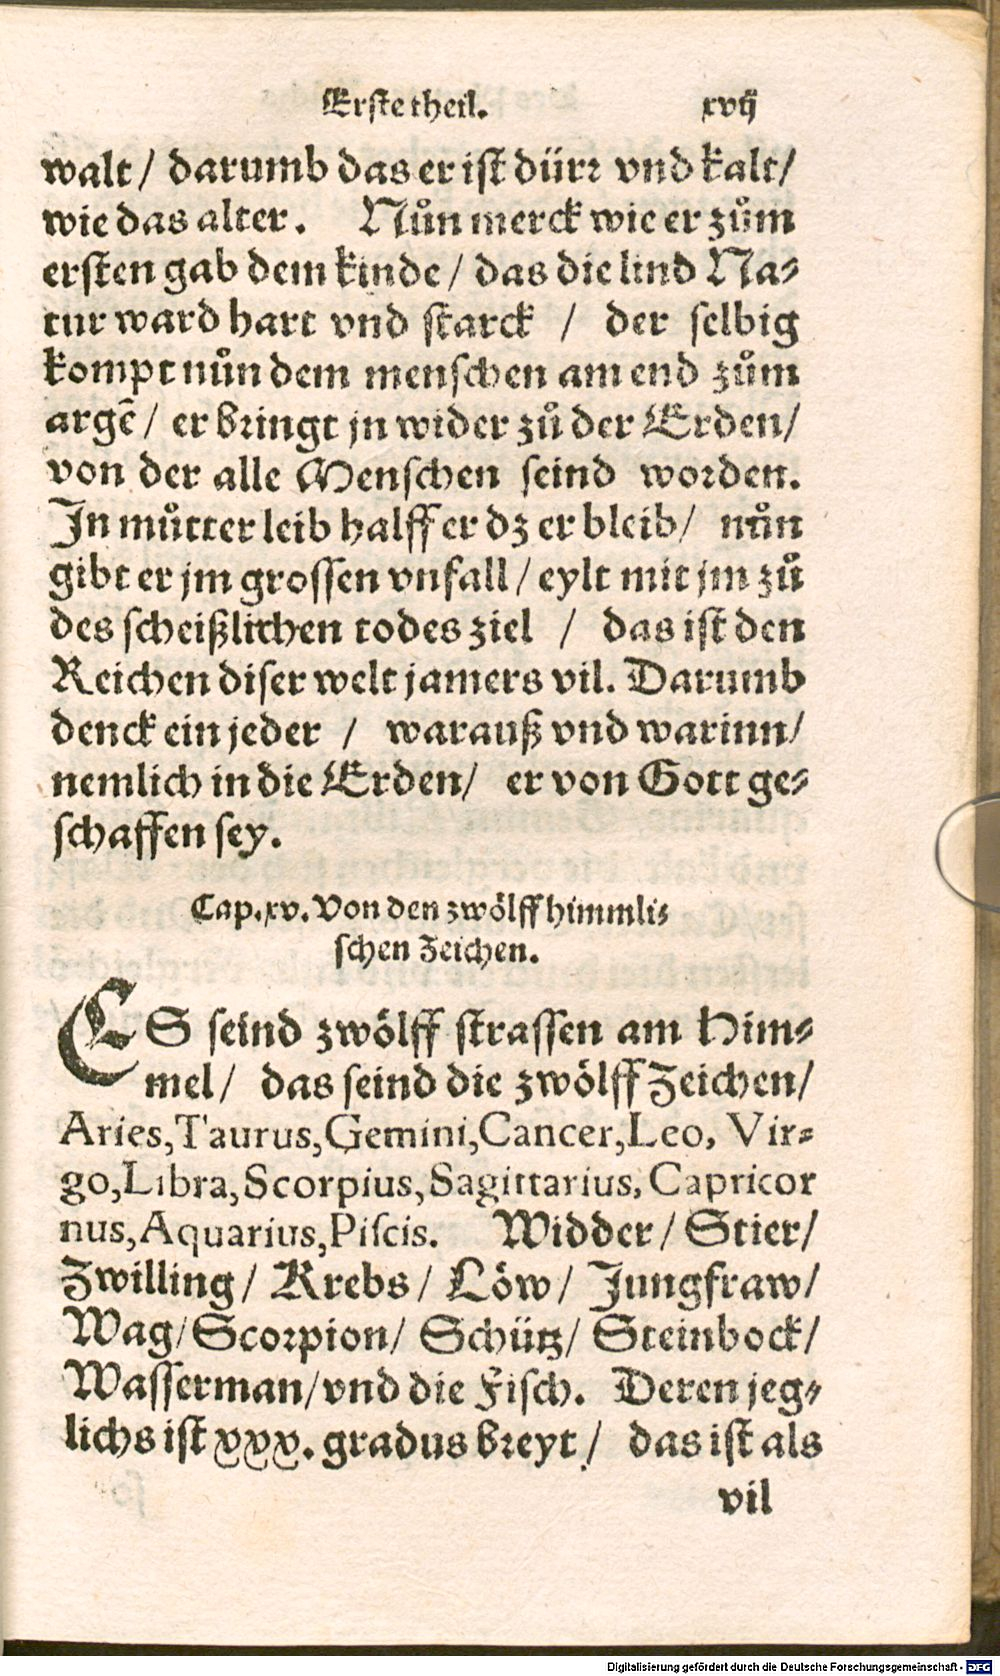 Erste theil. xvij
walt/ darumb das er ist dürr vnd kalt/
wie das alter. Nůn merck wie er zům
ersten gab dem kinde/ das die lind Na-
tur ward hart vnd starck / der selbig
kompt nůn dem menschen am end zům
argē/ er bringt jn wider zů der Erden/
von der alle Menschen seind worden.
In můtter leib halff er dz er bleib/ nůn
gibt er jm grossen vnfall/ eylt mit jm zů
des scheißlichen todes ziel / das ist den
Reichen diser welt jamers vil. Darumb
denck ein jeder / warauß vnd warinn/
nemlich in die Erden/ er von Gott ge-
schaffen sey.
Cap. xv. Von den zwölff himmli-
schen Zeichen.
ES seind zwölff strassen am Him-
mel/ das seind die zwölff Zeichen/
Aries, Taurus, Gemini, Cancer, Leo, Vir-
go, Libra, Scorpius, Sagittarius, Capricor
nus, Aquarius, Piscis. Widder/ Stier/
Zwilling/ Krebs/ Löw/ Jungfraw/
Wag/ Scorpion/ Schütz/ Steinbock/
Wasserman/ vnd die Fisch. Deren jeg-
lichs ist xxx. gradus breyt/ das ist als
vil
Digitalisierung gefördert durch die Deutsche Forschungsgemeinschaft - DFG